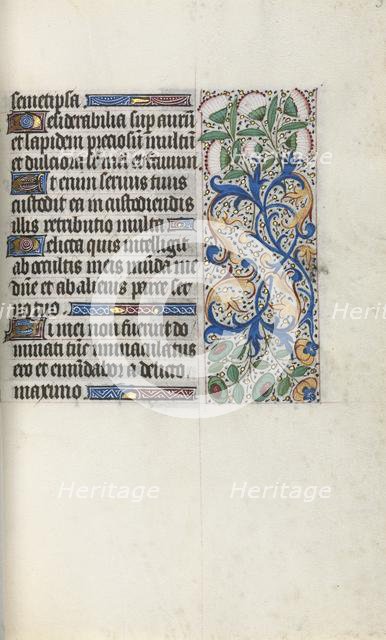 semetipsa.
Desiderabilia sup aurum
et lapidem preciosum multum
et dulciora super mel et favum.
Etenim servus tuus
custodit ea in custodiendis
illis retributio multa.
Delicta quis intelligit
ab occultis meis munda me
dne et ab alienis parce ser
vo tuo.
Si mei non fuerint do
minati tunc immaculatus
ero et emundabor a delicto
maximo.
Heritage
Heritage
Heritage
Heritage
Heritage
Heritage